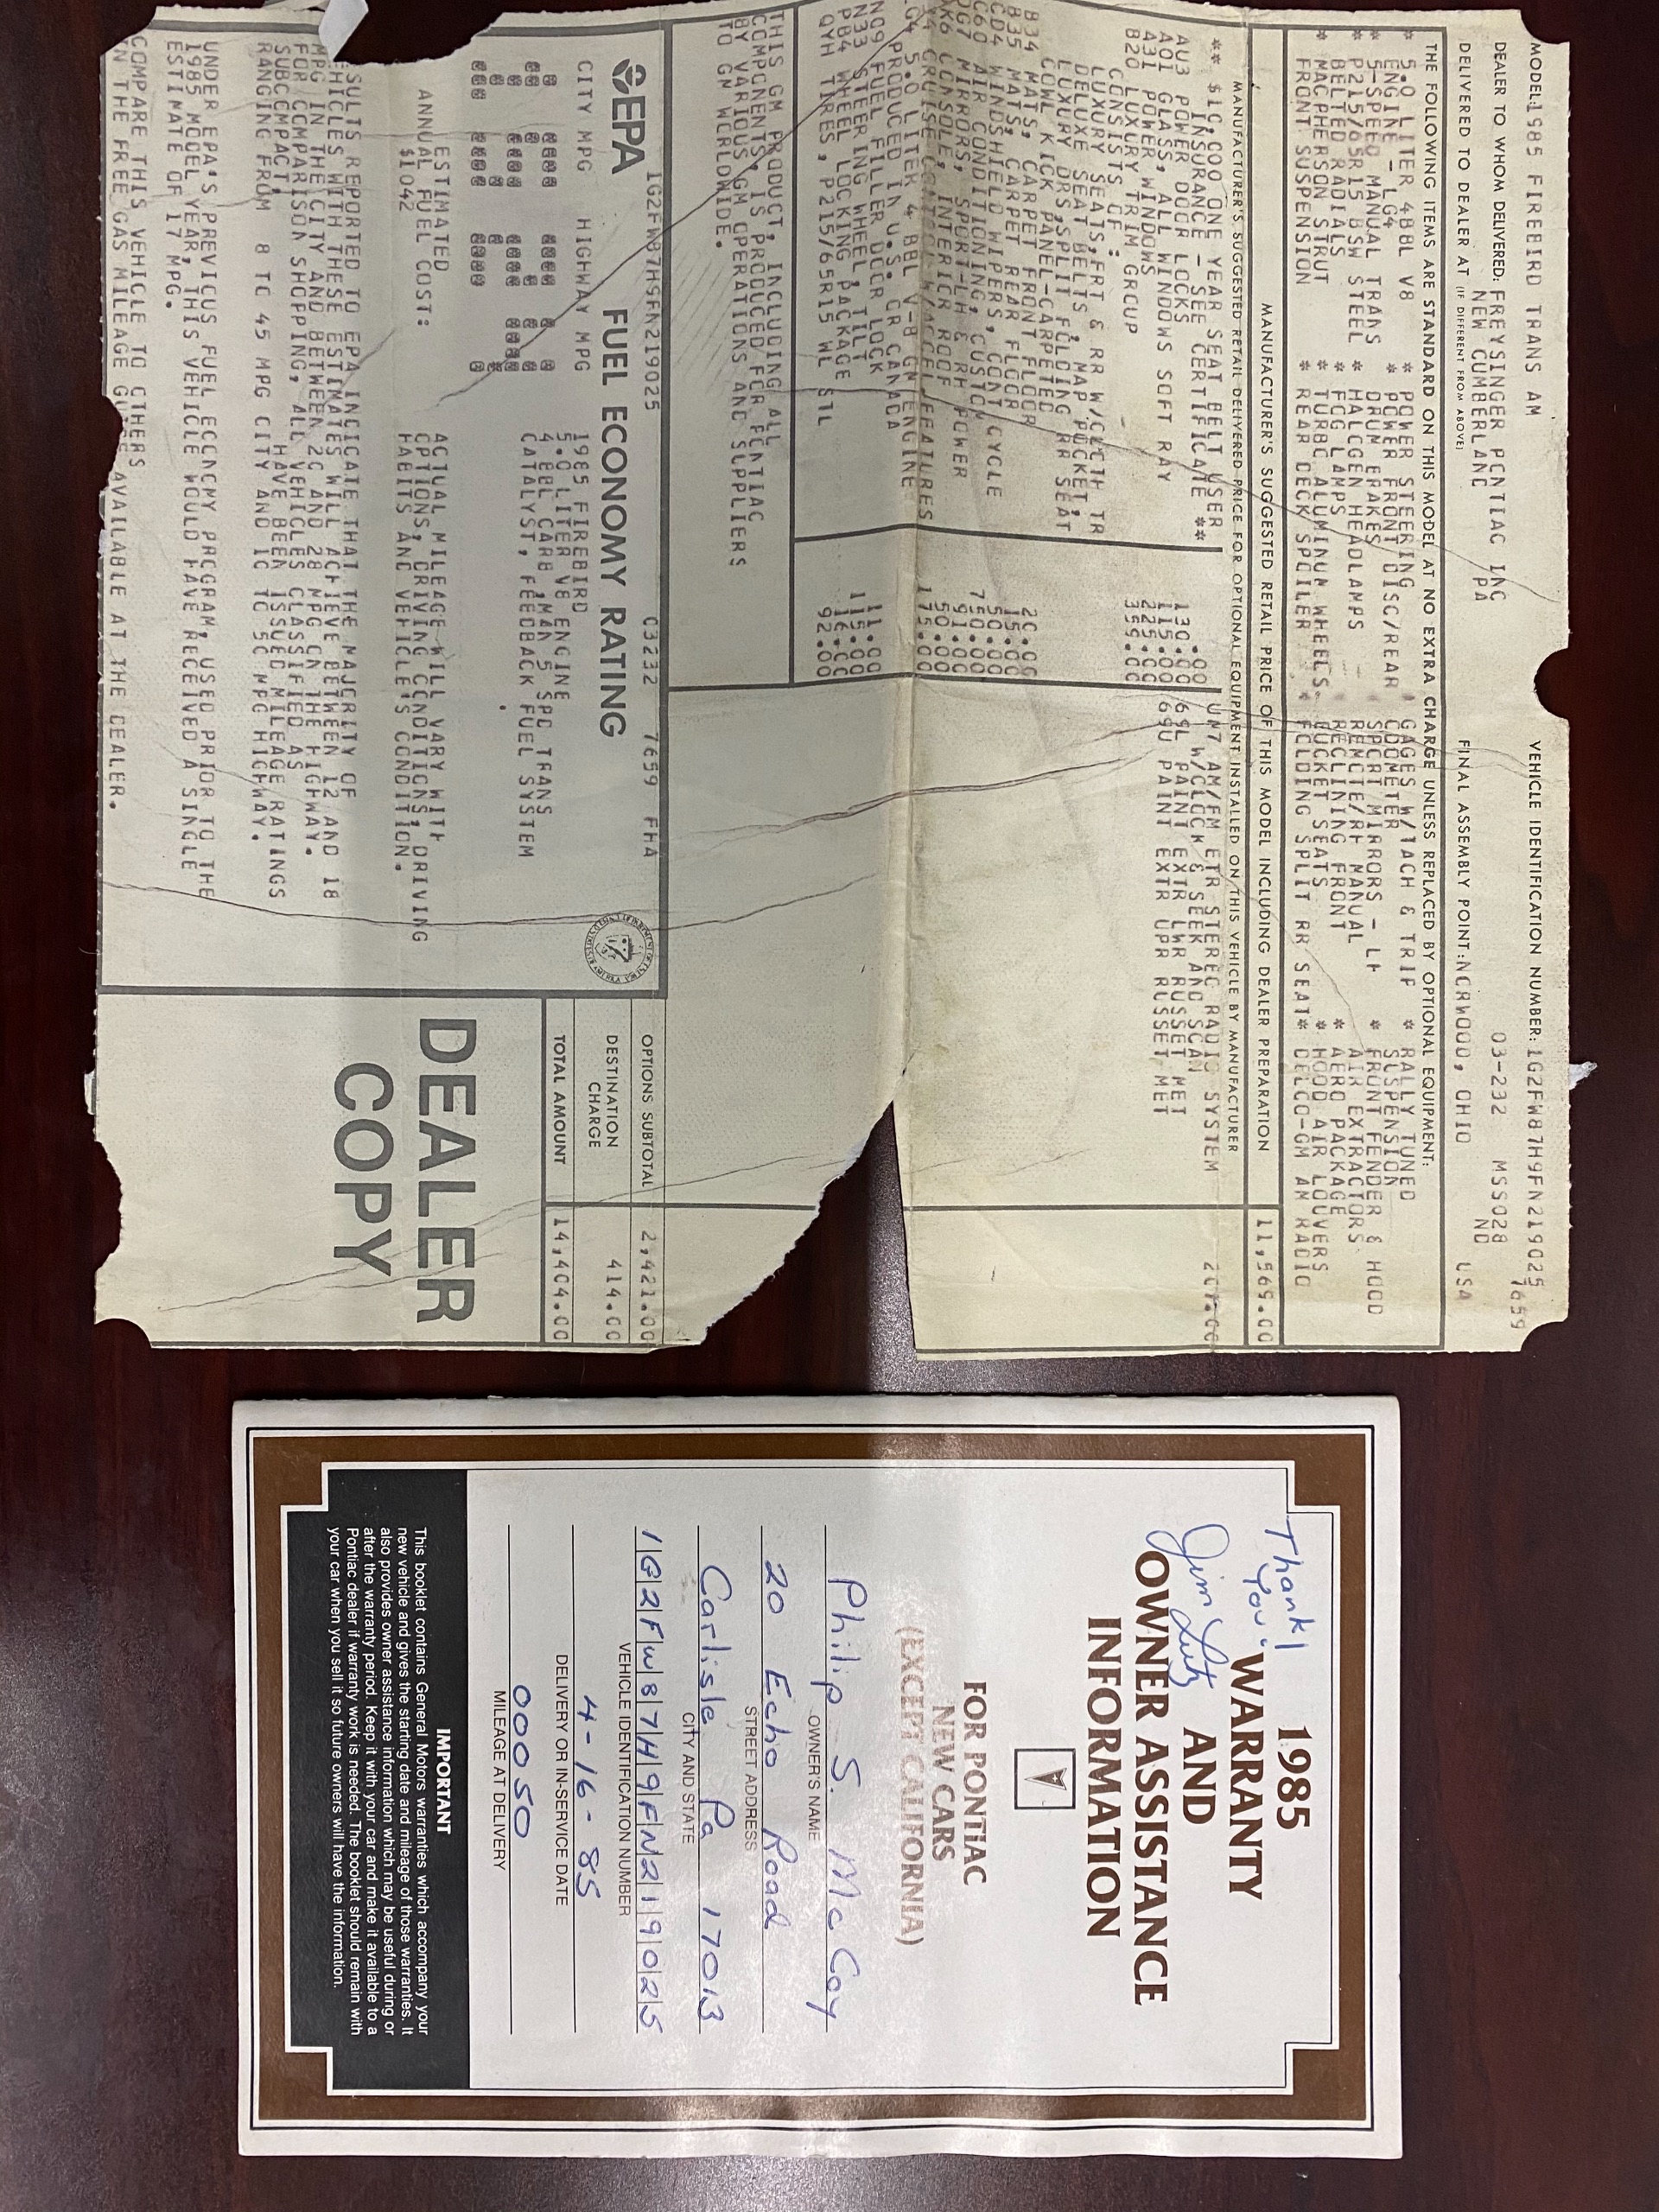 MODEL:1985 FIREBIRD TRANS AM
VEHICLE IDENTIFICATION NUMBER: 1G2FW87H9FN219025
7659
DEALER TO WHOM DELIVERED: FREYSINGER PONTIAC INC
03-232 MSS028
NEW CUMBERLAND PA
ND
DELIVERED TO DEALER AT (IF DIFFERENT FROM ABOVE)
FINAL ASSEMBLY POINT: NORWOOD, OHIO USA
THE FOLLOWING ITEMS ARE STANDARD ON THIS MODEL AT NO EXTRA CHARGE UNLESS REPLACED BY OPTIONAL EQUIPMENT:
* 5.0 LITER 4BBL V8 * POWER STEERING * GAGES W/TACH & TRIP * RALLY TUNED
ENGINE - LG4 * POWER FRONT DISC/REAR ODOMETER SUSPENSION
* 5-SPEED MANUAL TRANS DRUM BRAKES * SPORT MIRRORS - LH * FRONT FENDER & HOOD
* P215/65R15 BSW STEEL * HALOGEN HEADLAMPS REMOTE/RH MANUAL AIR EXTRACTORS
BELTED RADIALS * FOG LAMPS * RECLINING FRONT * AERO PACKAGE
* MACPHERSON STRUT * TURBO ALUMINUM WHEELS BUCKET SEATS * HOOD AIR LOUVERS
FRONT SUSPENSION * REAR DECK SPOILER * FOLDING SPLIT RR SEAT * DELCO-GM AM RADIO
MANUFACTURER'S SUGGESTED RETAIL PRICE OF THIS MODEL INCLUDING DEALER PREPARATION 11,569.00
MANUFACTURER'S SUGGESTED RETAIL DELIVERED PRICE FOR OPTIONAL EQUIPMENT INSTALLED ON THIS VEHICLE BY MANUFACTURER
** $10,000 ONE YEAR SEAT BELT USER
INSURANCE - SEE CERTIFICATE **
AU3 POWER DOOR LOCKS 130.00
A01 GLASS, ALL WINDOWS SOFT RAY 115.00
A31 POWER WINDOWS 225.00
B20 LUXURY TRIM GROUP 359.00
CONSISTS OF :
LUXURY SEATS,FRT & RR W/CLOTH TR
DELUXE SEAT BELTS, MAP POCKET,
LUXURY DRS,SPLIT FOLDING RR SEAT
COWL KICK PANEL-CARPETED
B34 MATS, CARPET FRONT FLOOR 20.00
B35 MATS, CARPET REAR FLOOR 15.00
CD4 WINDSHIELD WIPERS, CONT CYCLE 50.00
C60 AIR CONDITIONING, CUSTOM 750.00
DG7 MIRRORS, SPORT-LH & RH POWER 91.00
DK6 CONSOLE, INTERIOR ROOF 50.00
K34 CRUISE CONTROL W/ACCEL FEATURES 175.00
LG4 5.0 LITER 4 BBL V-8 GM ENGINE
PRODUCED IN U.S. OR CANADA
N09 FUEL FILLER DOOR LOCK 11.00
N33 STEERING WHEEL, TILT 115.00
PB4 WHEEL LOCKING PACKAGE 16.00
QYH TIRES, P215/65R15 WL STL 92.00
UM7 AM/FM ETR STEREO RADIO SYSTEM 207.00
W/CLOCK & SEEK AND SCAN
69L PAINT EXTR LWR RUSSET MET
69U PAINT EXTR UPR RUSSET MET
THIS GM PRODUCT, INCLUDING ALL
COMPONENTS, IS PRODUCED FOR PONTIAC
BY VARIOUS GM OPERATIONS AND SUPPLIERS
TO GM WORLDWIDE.
1G2FW87H9FN219025 C3232 7659 FHA
EPA FUEL ECONOMY RATING
CITY MPG HIGHWAY MPG
1985 FIREBIRD
5.0 LITER V8 ENGINE
4 BBL CARB, MAN 5 SPD TRANS
CATALYST, FEEDBACK FUEL SYSTEM
ESTIMATED
ANNUAL FUEL COST:
$1042
ACTUAL MILEAGE WILL VARY WITH
OPTIONS, DRIVING CONDITIONS, DRIVING
HABITS AND VEHICLE'S CONDITION.
SULTS REPORTED TO EPA INDICATE THAT THE MAJORITY OF
EHICLES WITH THESE ESTIMATES WILL ACHIEVE BETWEEN 12 AND 18
MPG IN THE CITY AND BETWEEN 20 AND 28 MPG ON THE HIGHWAY.
FOR COMPARISON SHOPPING, ALL VEHICLES CLASSIFIED AS
SUBCOMPACT HAVE BEEN ISSUED MILEAGE RATINGS
RANGING FROM 8 TO 45 MPG CITY AND 10 TO 50 MPG HIGHWAY.
UNDER EPA'S PREVIOUS FUEL ECONOMY PROGRAM, USED PRIOR TO THE
1985 MODEL YEAR, THIS VEHICLE WOULD HAVE RECEIVED A SINGLE
ESTIMATE OF 17 MPG.
COMPARE THIS VEHICLE TO OTHERS
IN THE FREE GAS MILEAGE GUIDE AVAILABLE AT THE DEALER.
OPTIONS SUBTOTAL 2,421.00
DESTINATION CHARGE 414.00
TOTAL AMOUNT 14,404.00
DEALER
COPY
Thank
You
Jim Lutz
1985
WARRANTY
AND
OWNER ASSISTANCE
INFORMATION
FOR PONTIAC
NEW CARS
(EXCEPT CALIFORNIA)
Philip S. McCoy
OWNER'S NAME
20 Echo Road
STREET ADDRESS
Carlisle Pa 17013
CITY AND STATE
1G2FW87H9FN219025
VEHICLE IDENTIFICATION NUMBER
4-16-85
DELIVERY OR IN-SERVICE DATE
00050
MILEAGE AT DELIVERY
IMPORTANT
This booklet contains General Motors warranties which accompany your
new vehicle and gives the starting date and mileage of those warranties. It
also provides owner assistance information which may be useful during or
after the warranty period. Keep it with your car and make it available to a
Pontiac dealer if warranty work is needed. The booklet should remain with
your car when you sell it so future owners will have the information.